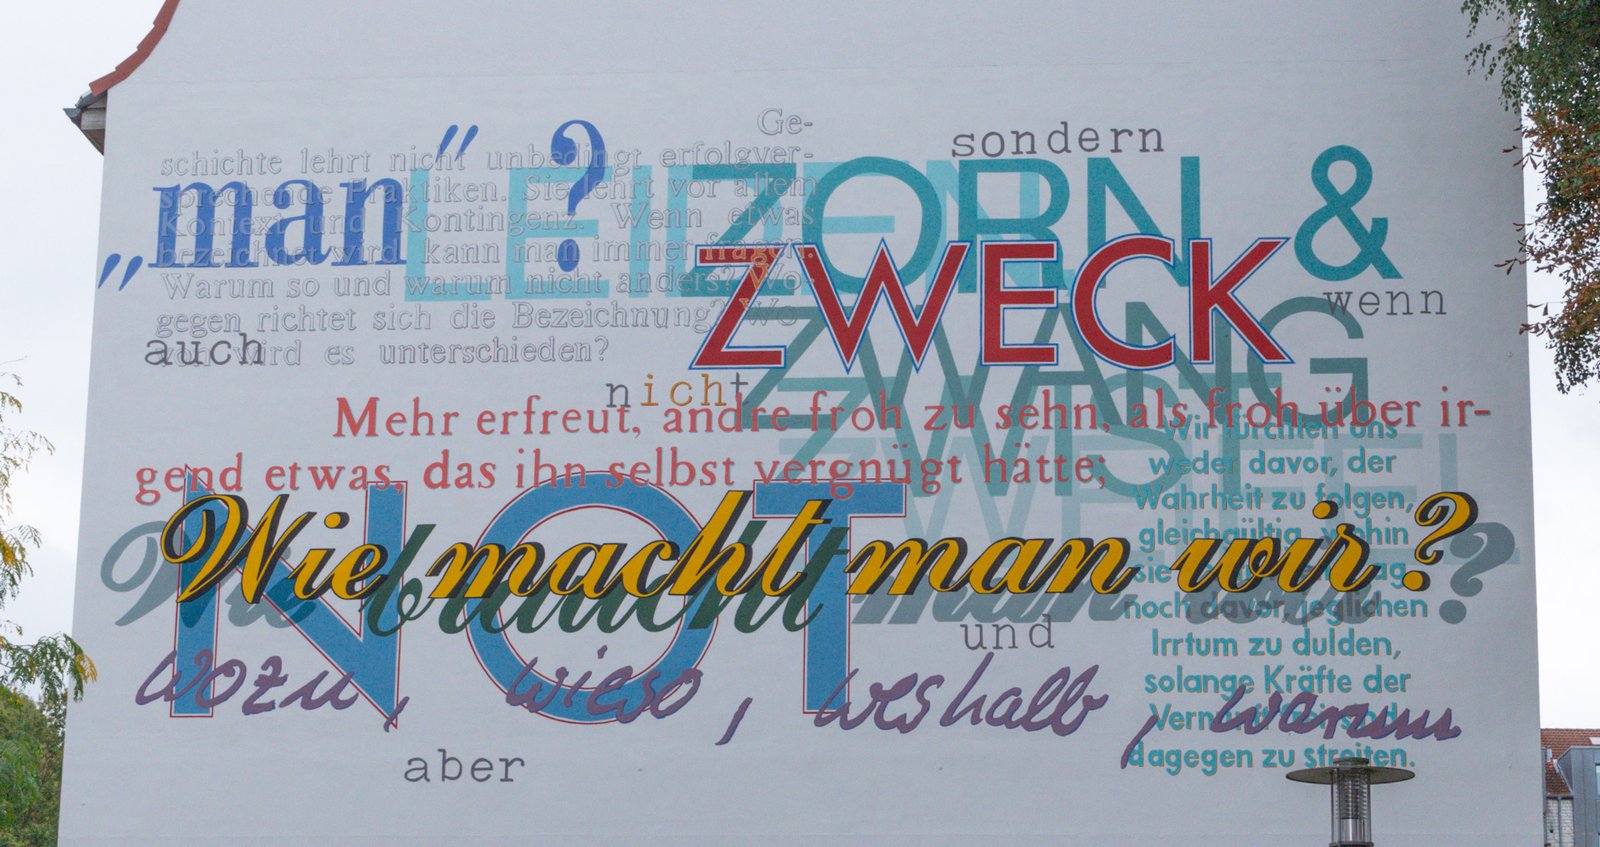 Ge-
schichte lehrt nicht unbedingt erfolgver-
sprechende Praktiken. Sie lehrt vor allem
Kontext und Kontingenz. Wenn etwas
bezeichnet wird, kann man immer fragen:
Warum so und warum nicht anders? Wo-
gegen richtet sich die Bezeichnung? Wo-
von wird es unterschieden?
„man“?
sondern
ZORN &
ZWECK
wenn
ZWANG
auch
nicht
ZWIST
Mehr erfreut, andre froh zu sehn, als froh über ir-
gend etwas, das ihn selbst vergnügt hätte;
NOT
Wie macht man wir?
Wie braucht man
Wir fürchten uns
weder davor, der
Wahrheit zu folgen,
gleichgültig, wohin
sie
noch davor, jeglichen
Irrtum zu dulden,
solange Kräfte der
dagegen zu streiten.
und
wozu, wieso, weshalb, warum
aber